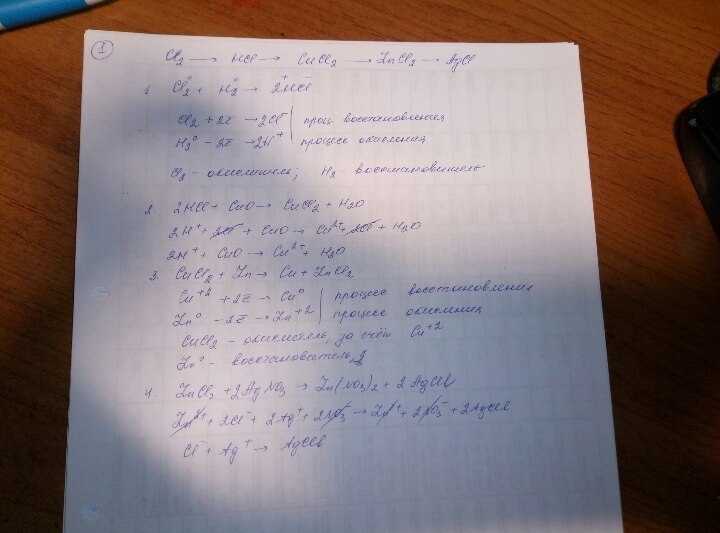 1
Cl₂ → HCl → CuCl₂ → ZnCl₂ → AgCl
1. Cl₂⁰ + H₂⁰ → 2H⁺Cl⁻
Cl₂ + 2ē → 2Cl⁻ | проц. восстановления
H₂⁰ - 2ē → 2H⁺ | процесс окисления
Cl₂ - окислитель; H₂ восстановитель
2. 2HCl + CuO → CuCl₂ + H₂O
2H⁺ + 2Cl⁻ + CuO → Cu²⁺ + 2Cl⁻ + H₂O
2H⁺ + CuO → Cu²⁺ + H₂O
3. CuCl₂ + Zn → Cu + ZnCl₂
Cu⁺² + 2ē → Cu⁰ | процесс восстановления
Zn⁰ - 2ē → Zn⁺² | процесс окисления
CuCl₂ - окислитель, за счёт Cu⁺²
Zn⁰ - восстановитель
4. ZnCl₂ + 2AgNO₃ → Zn(NO₃)₂ + 2AgCl↓
Zn²⁺ + 2Cl⁻ + 2Ag⁺ + 2NO₃⁻ → Zn²⁺ + 2NO₃⁻ + 2AgCl↓
Cl⁻ + Ag⁺ → AgCl↓